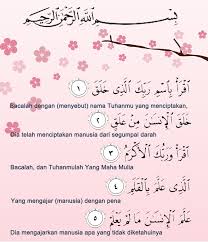 بِسْمِ اللَّهِ الرَّحْمَٰنِ الرَّحِيمِ
ٱقۡرَأۡ بِٱسۡمِ رَبِّكَ ٱلَّذِي خَلَقَ ١
Bacalah dengan (menyebut) nama Tuhanmu yang menciptakan,
خَلَقَ ٱلۡإِنسَٰنَ مِنۡ عَلَقٍ ٢
Dia telah menciptakan manusia dari segumpal darah
ٱقۡرَأۡ وَرَبُّكَ ٱلۡأَكۡرَمُ ٣
Bacalah, dan Tuhanmulah Yang Maha Mulia
ٱلَّذِي عَلَّمَ بِٱلۡقَلَمِ ٤
Yang mengajar (manusia) dengan pena
عَلَّمَ ٱلۡإِنسَٰنَ مَا لَمۡ يَعۡلَمۡ ٥
Dia mengajarkan manusia apa yang tidak diketahuinya